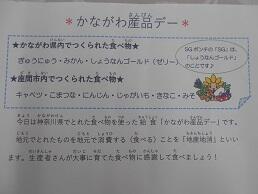 ＊かながわ産品デー＊
★かながわ県内でつくられた食べ物★
ぎゅうにゅう・みかん・しょうなんゴールド（ゼリー）
★座間市内でつくられた食べ物★
キャベツ・こまつな・にんじん・じゃがいも・きなこ・みそ
SGポンチの「SG」は、
「しょうなんゴールド」
のことです♪
今日は神奈川県でとれた食べ物を使った給食「かながわ産品デー」です。
地元でとれたものを地元で消費する（食べる）ことを「地産地消」といい
ます。生産者さんが大事に育てた食べ物に感謝して食べましょう！